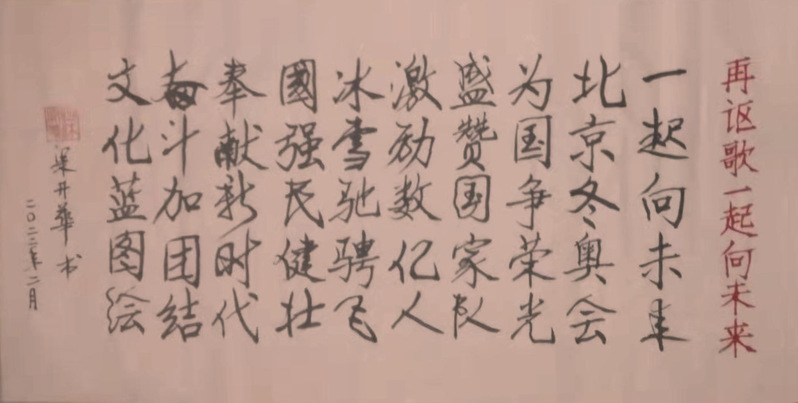 再讴歌一起向未来
一起向未来
北京冬奥会
为国争荣光
盛赞国家队
激励数亿人
冰雪驰骋飞
國强民健壮
奉献新时代
奋斗加团结
文化蓝图绘
梁开華书
二〇二二年二月